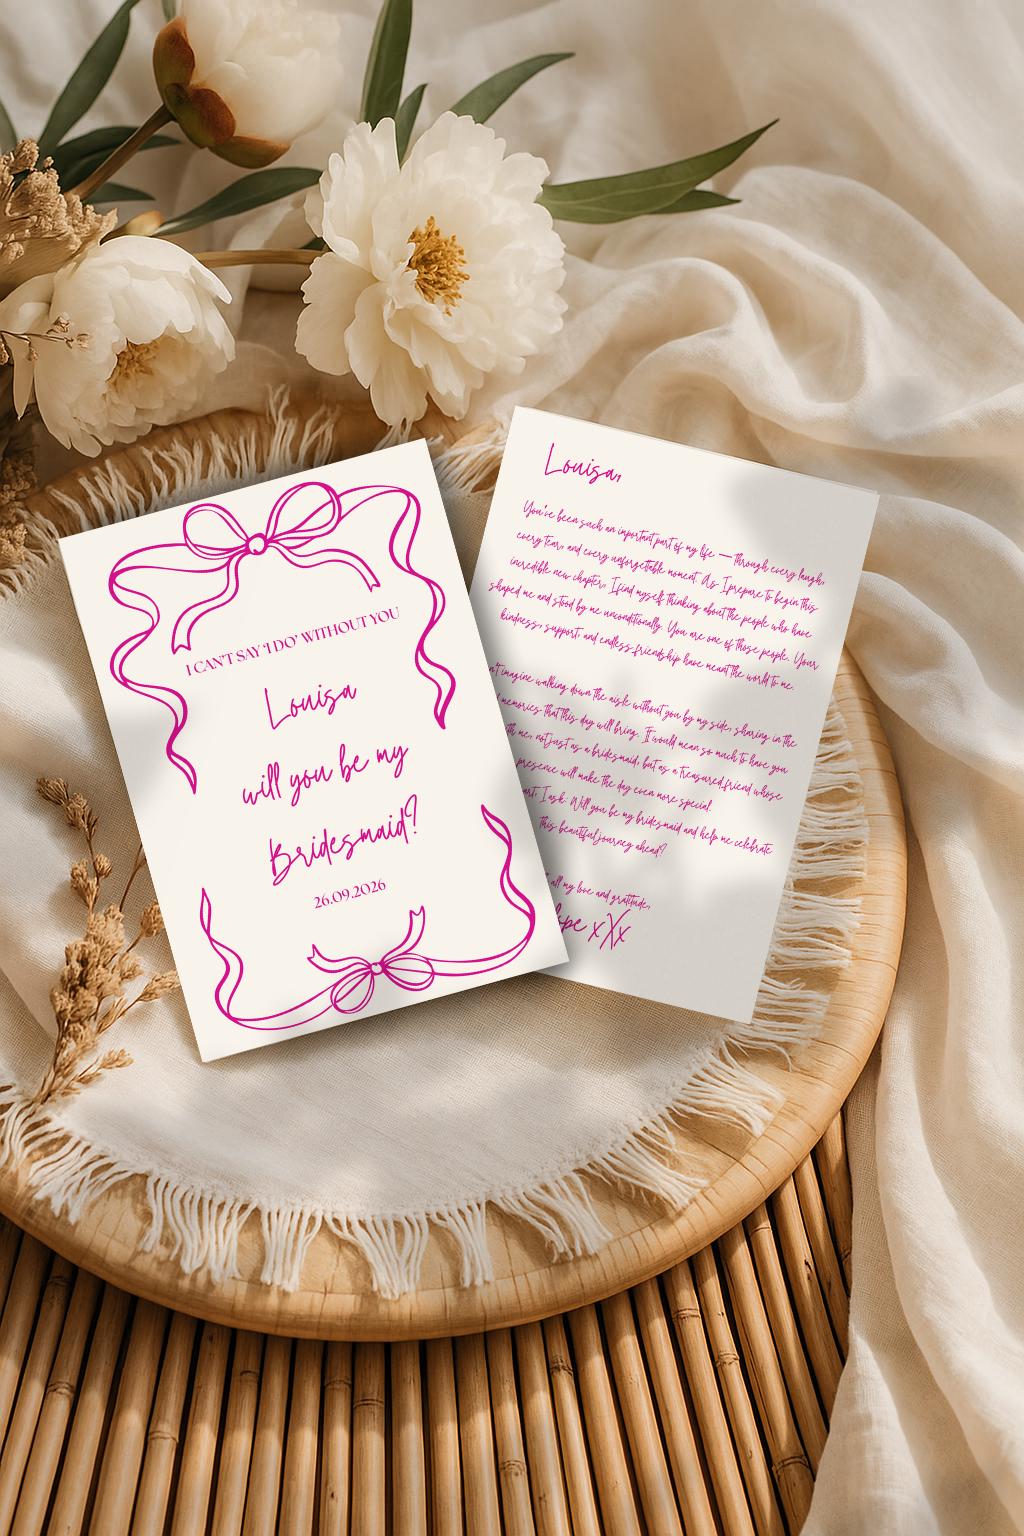 I CAN'T SAY 'I DO' WITHOUT YOU
Louisa
will you be my
Bridesmaid?
26.09.2026
Louisa,
You've been such an important part of my life — through every laugh,
every tear, and every unforgettable moment. As I prepare to begin this
incredible new chapter, I find myself thinking about the people who have
shaped me and stood by me unconditionally. You are one of those people. Your
kindness, support, and endless friendship have meant the world to me.
imagine walking down the aisle without you by my side, sharing in the
memories that this day will bring. It would mean so much to have you
me, not just as a bridesmaid, but as a treasured friend whose
presence will make the day even more special.
I ask: Will you be my bridesmaid and help me celebrate
this beautiful journey ahead?
all my love and gratitude,
xXx